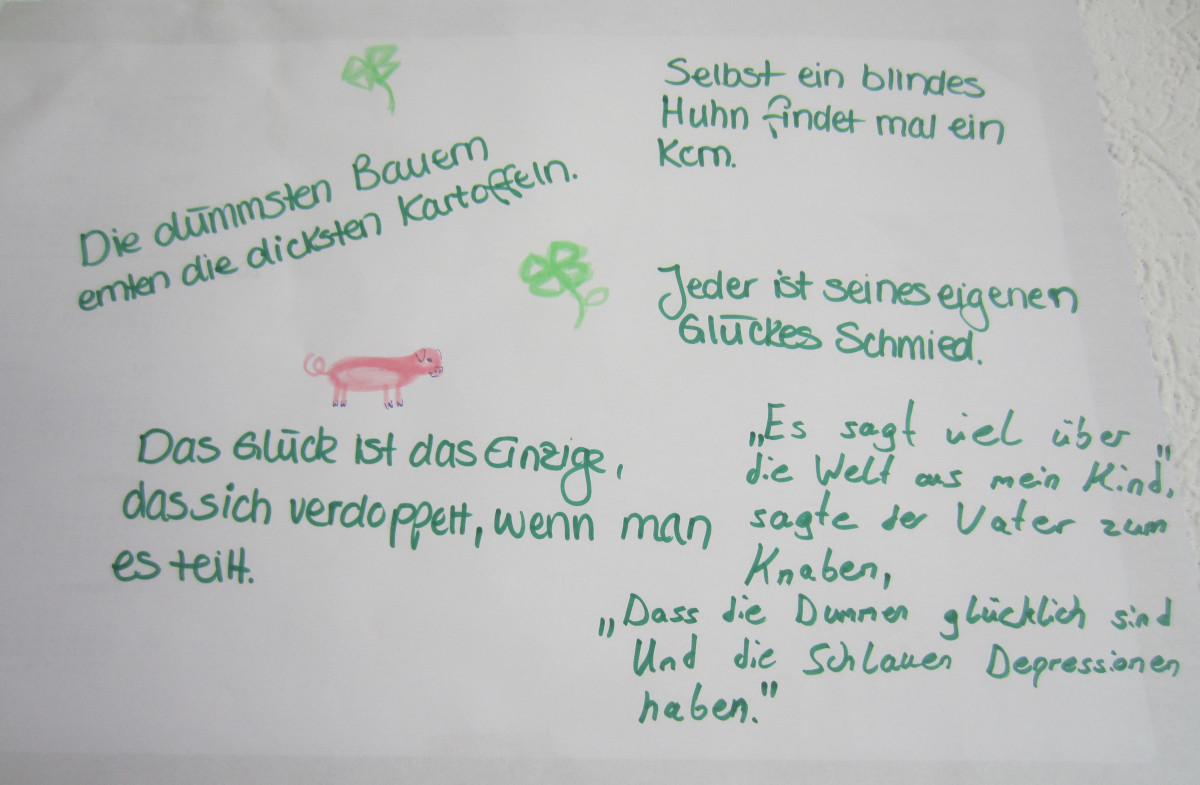 Die dümmsten Bauern
ernten die dicksten Kartoffeln.
Selbst ein blindes
Huhn findet mal ein
Korn.
Jeder ist seines eigenen
Glückes Schmied.
Das Glück ist das Einzige,
dass sich verdoppelt, wenn man
es teilt.
„Es sagt viel über
die Welt aus mein Kind",
sagte der Vater zum
Knaben,
„Dass die Dummen glücklich sind
Und die Schlauen Depressionen
haben."